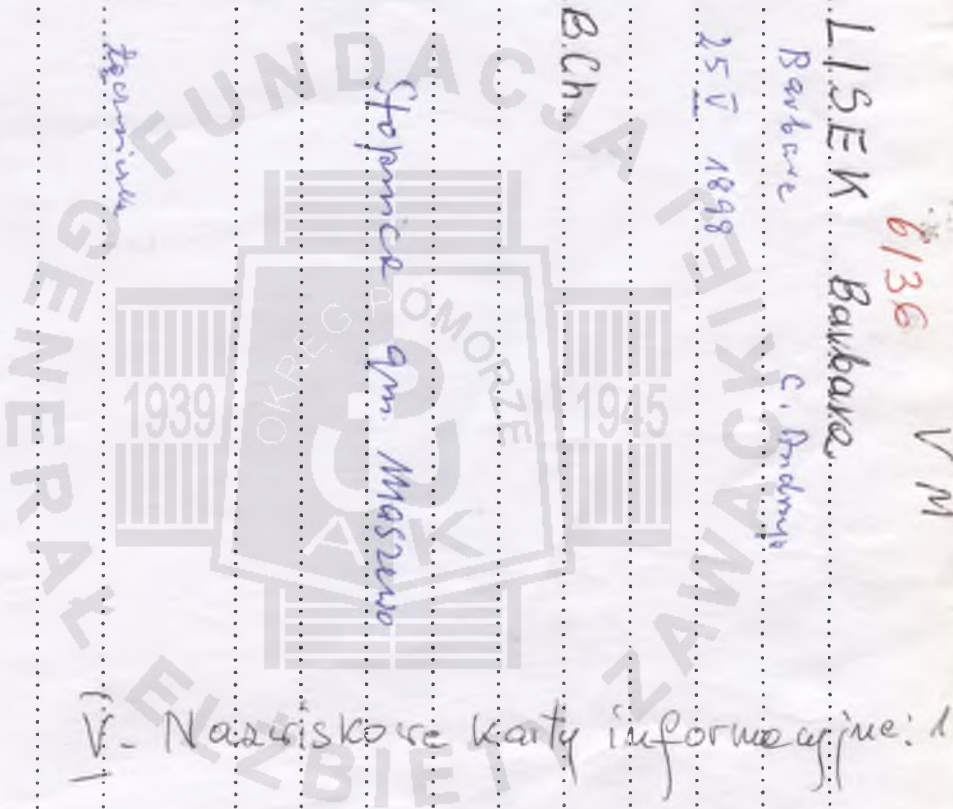 V M
6136
LISEK Barbara
Barbara c. Andrzeja
25 V 1898
B.Ch.
Stopnica gm. Maszewo
łączniczka
V- Nazwiskowe karty informacyjne: 1
FUNDACJA GENERAŁ ELŻBIETY ZAWACKIEJ
OKRĘG POMORZE
1939 1945
AK